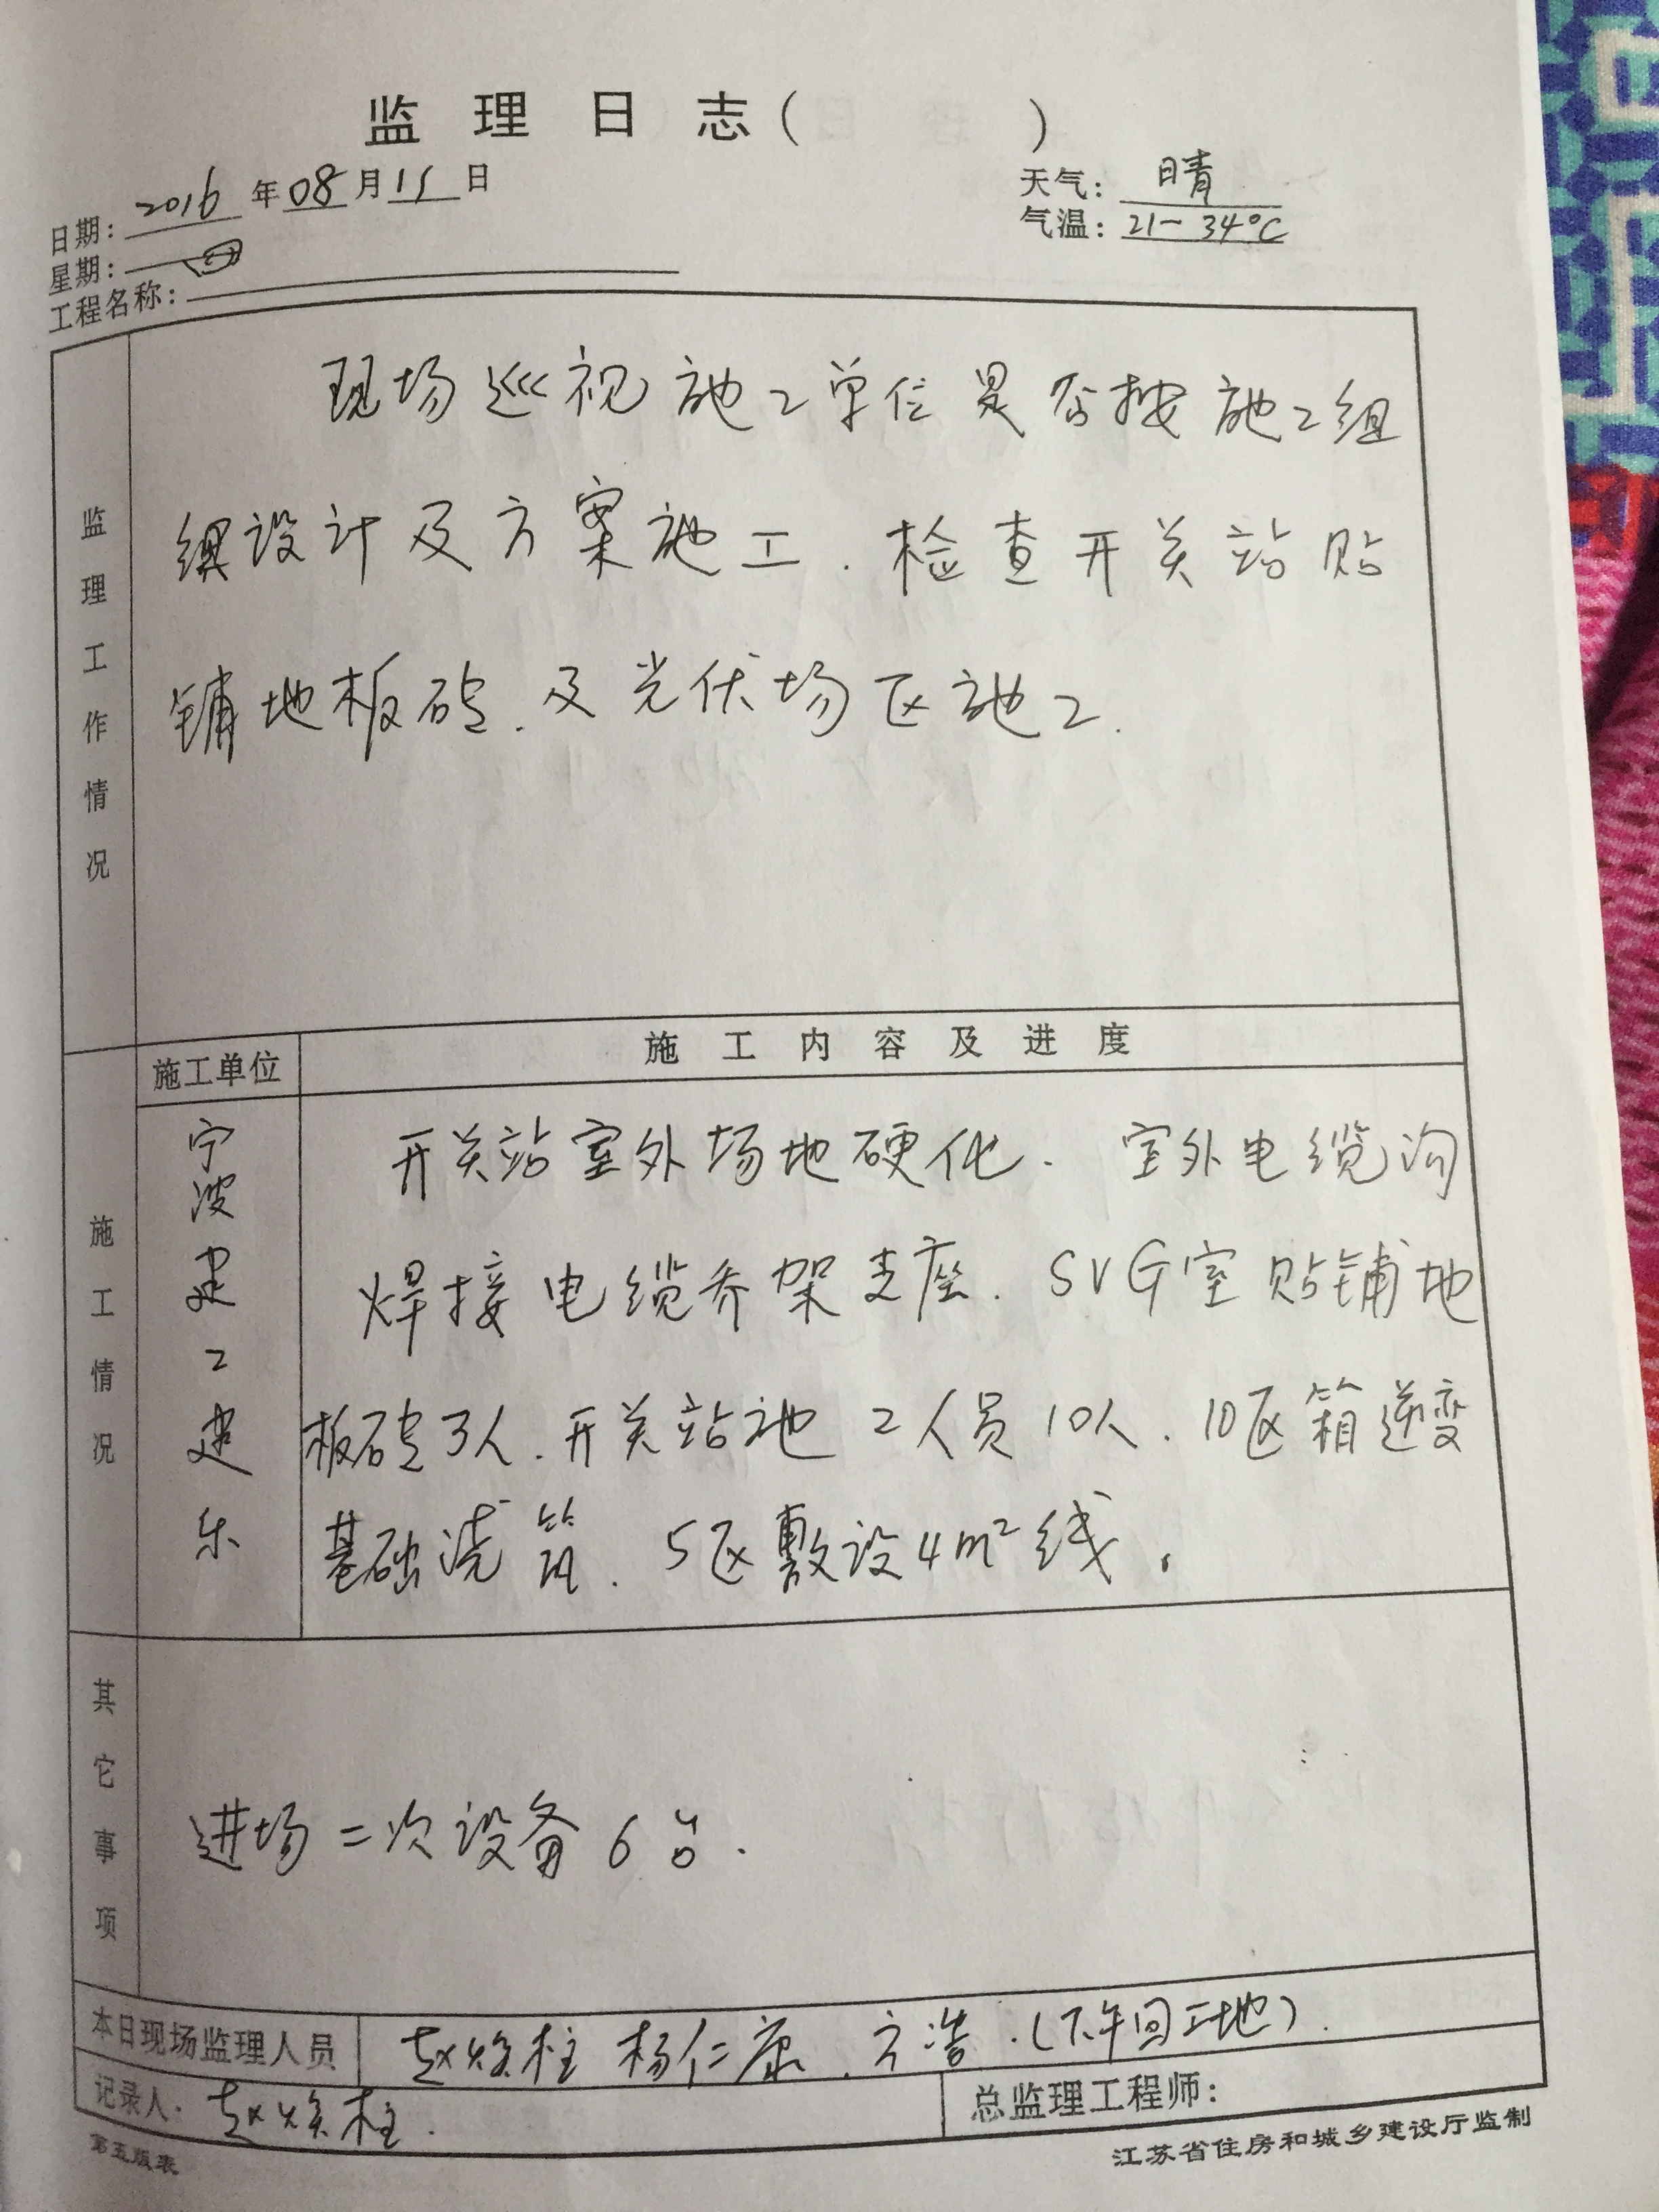 监理日志(　　　)
日期: 2016 年 08 月 11 日
天气: 晴
星期: 四
气温: 21-34℃
工程名称:
监理工作情况
现场巡视施工单位是否按施工组
织设计及方案施工.检查开关站贴
铺地板砖.及光伏场区施工.
施工情况
施工单位
施工内容及进度
宁波建工建乐
开关站室外场地硬化. 室外电缆沟
焊接电缆乔架支座. SVG室贴铺地
板砖3人.开关站施工人员10人.10区箱逆变
基础浇筑. 5区敷设4m²线.
其它事项
进场二次设备6台.
本日现场监理人员 赵焕柱 杨仁康.方浩.(下午回工地).
记录人. 赵焕柱.
总监理工程师:
第五版表
江苏省住房和城乡建设厅监制